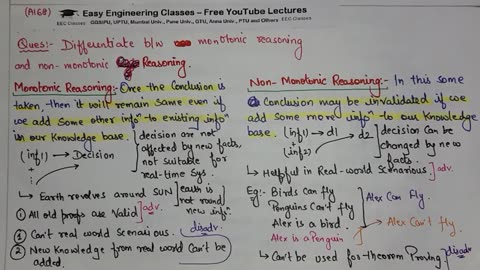 (AI68)
Easy Engineering Classes – Free YouTube Lectures
EEC Classes GGSIPU, UPTU, Mumbai Univ., Pune Univ., GTU, Anna Univ., PTU and Others EEC Classes
Ques:- Differentiate b/w monotonic reasoning
and non-monotonic Reasoning.
Monotonic Reasoning:- Once the Conclusion is
taken, then it will remain same even if
we add some other infoⁿ to existing infoⁿ
in our knowledge base.
(inf1) → Decision
+
decision are not
affected by new facts,
not suitable for
real-time Sys.
↳ Earth revolves around SUN
earth is
not round
new infoⁿ
① All old proofs are Valid } adv.
① Can't real world Scenarious.
disadv.
② New Knowledge from real world Can't be
added.
Non-Monotonic Reasoning:- In this some
Conclusion may be invalidated if we
add some more infoⁿ to our Knowledge
base.
(inf1) → d1 d2
+
(inf2)
decision can be
changed by new
facts.
↳ Helpful in Real-world Scenarious. ] adv.
Eg:- Birds Can fly
Penguins Can't fly
Alex is a bird.
Alex is a Penguin
Alex Can Fly.
→ Alex Can't fly.
↳ Can't be used for theorem Proving } disadv